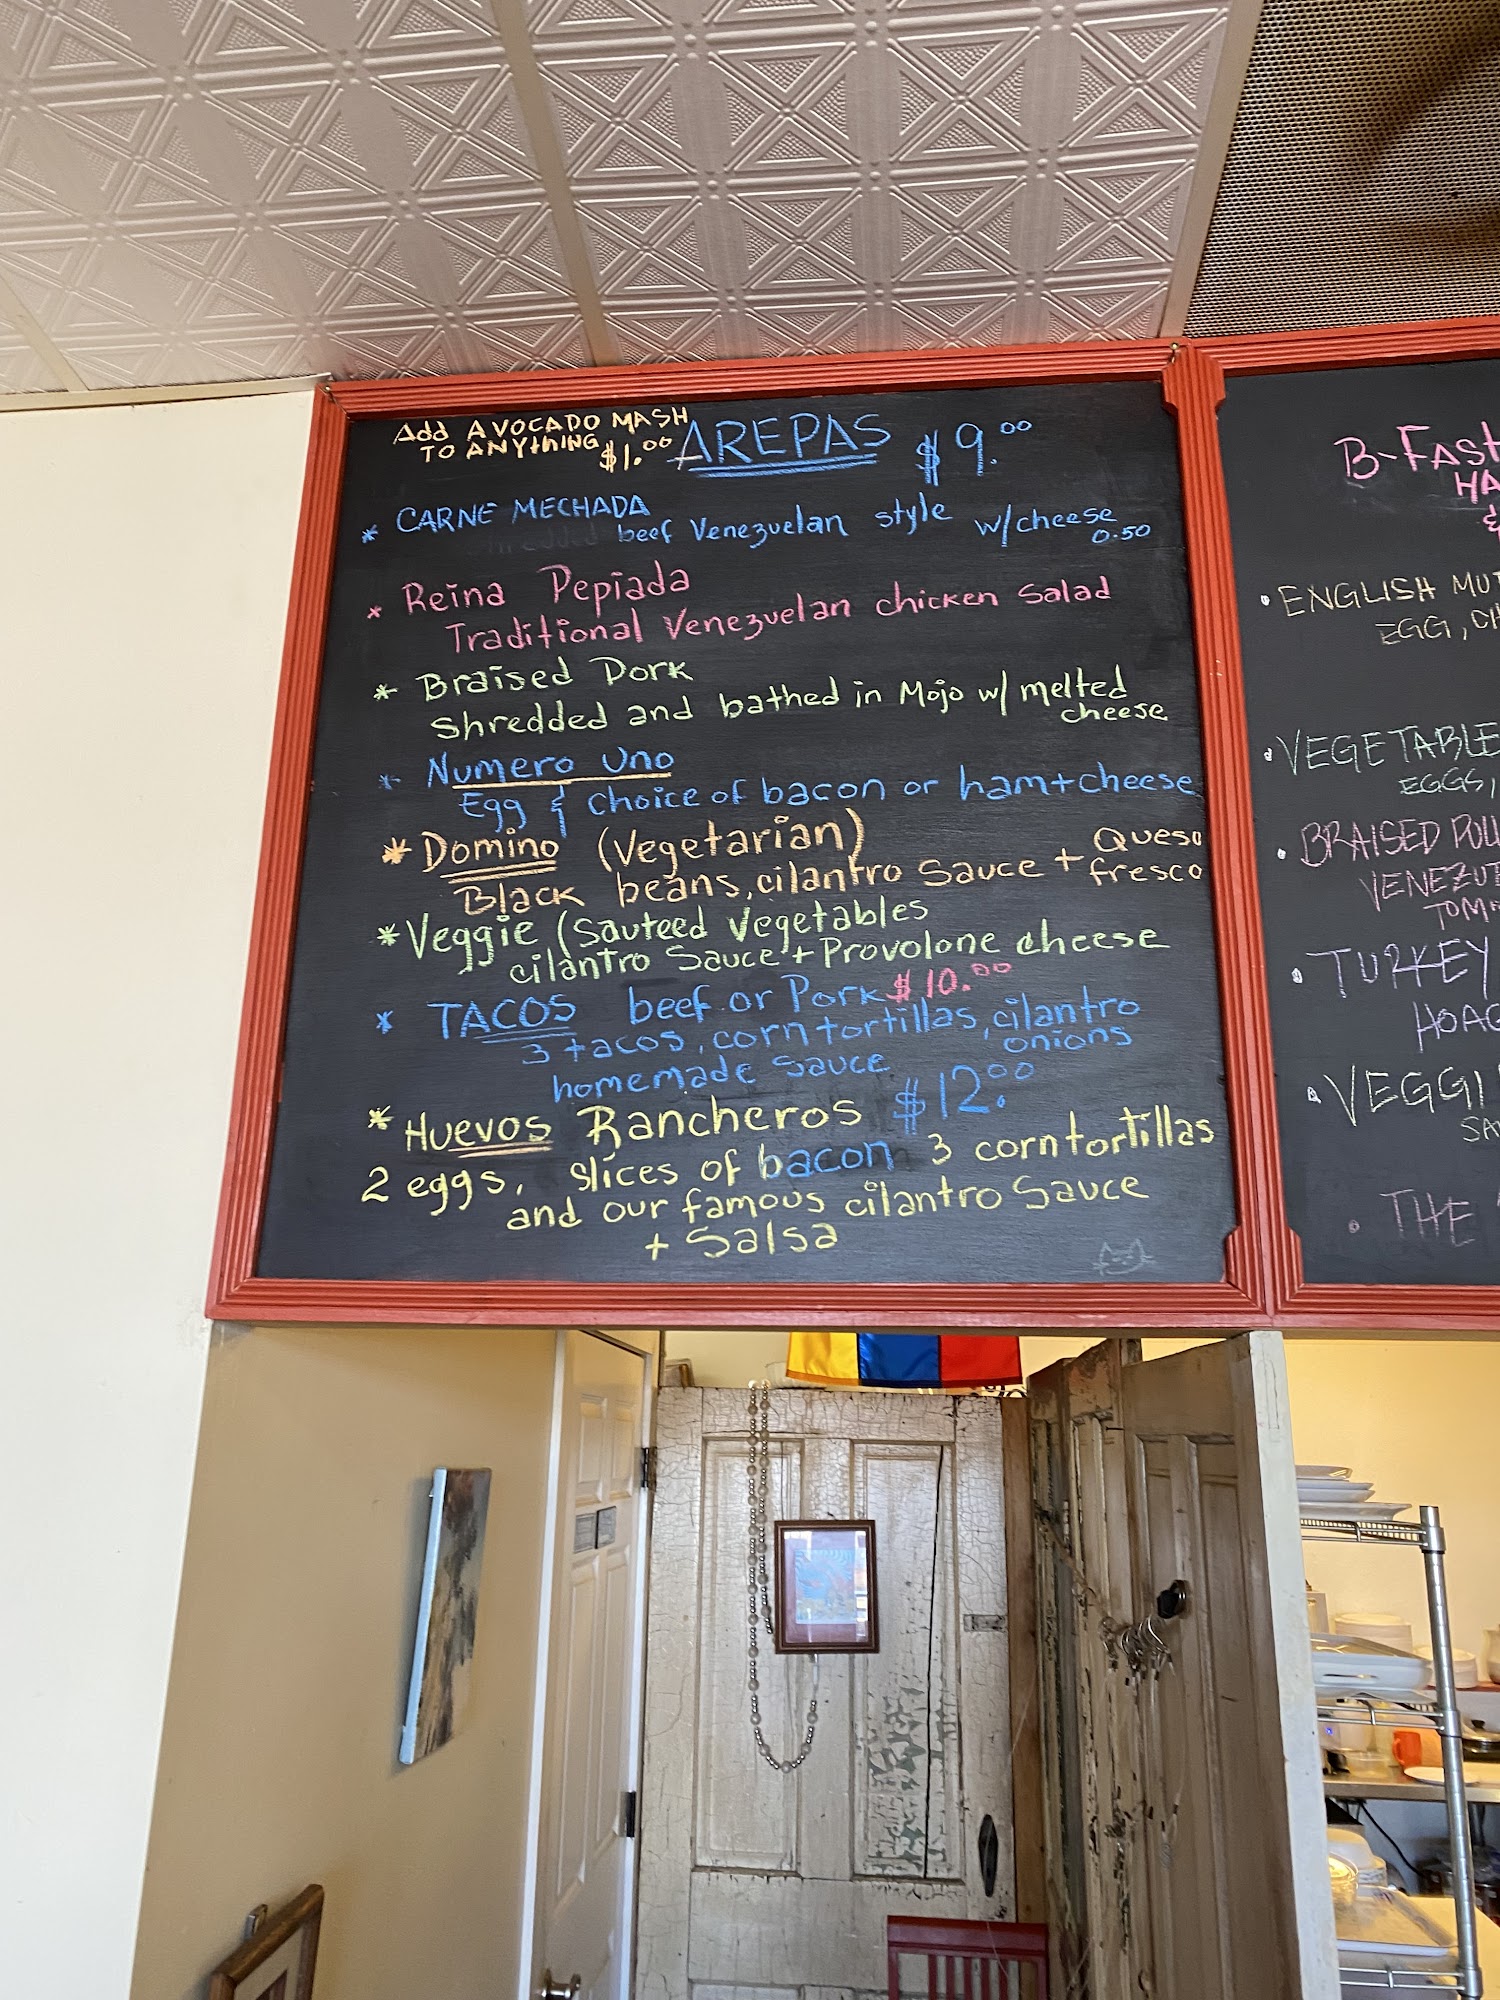 Add AVOCADO MASH
TO ANYthING
$1.00
AREPAS $9.00
* CARNE MECHADA
shredded beef Venezuelan style w/cheese
0.50
* Reina Pepiada
Traditional Venezuelan chicken Salad
* Braised Pork
shredded and bathed in Mojo w/ melted
cheese
* Numero Uno
Egg & choice of bacon or ham+cheese
* Domino (Vegetarian)
Black beans, cilantro Sauce + Queso
fresco
* Veggie (Sauteed Vegetables
cilantro Sauce + Provolone cheese
* TACOS beef or Pork $10.00
3 tacos, corn tortillas, cilantro
onions
homemade Sauce
* Huevos Rancheros $12.00
2 eggs, slices of bacon 3 corn tortillas
and our famous cilantro Sauce
+ Salsa
B-FAST
HA
&
• ENGLISH MU
EGG, CH
• VEGETABLE
EGGS,
• BRAISED
VENEZU
TOM
• TURKEY
HOAG
• VEGGI
SA
• THE